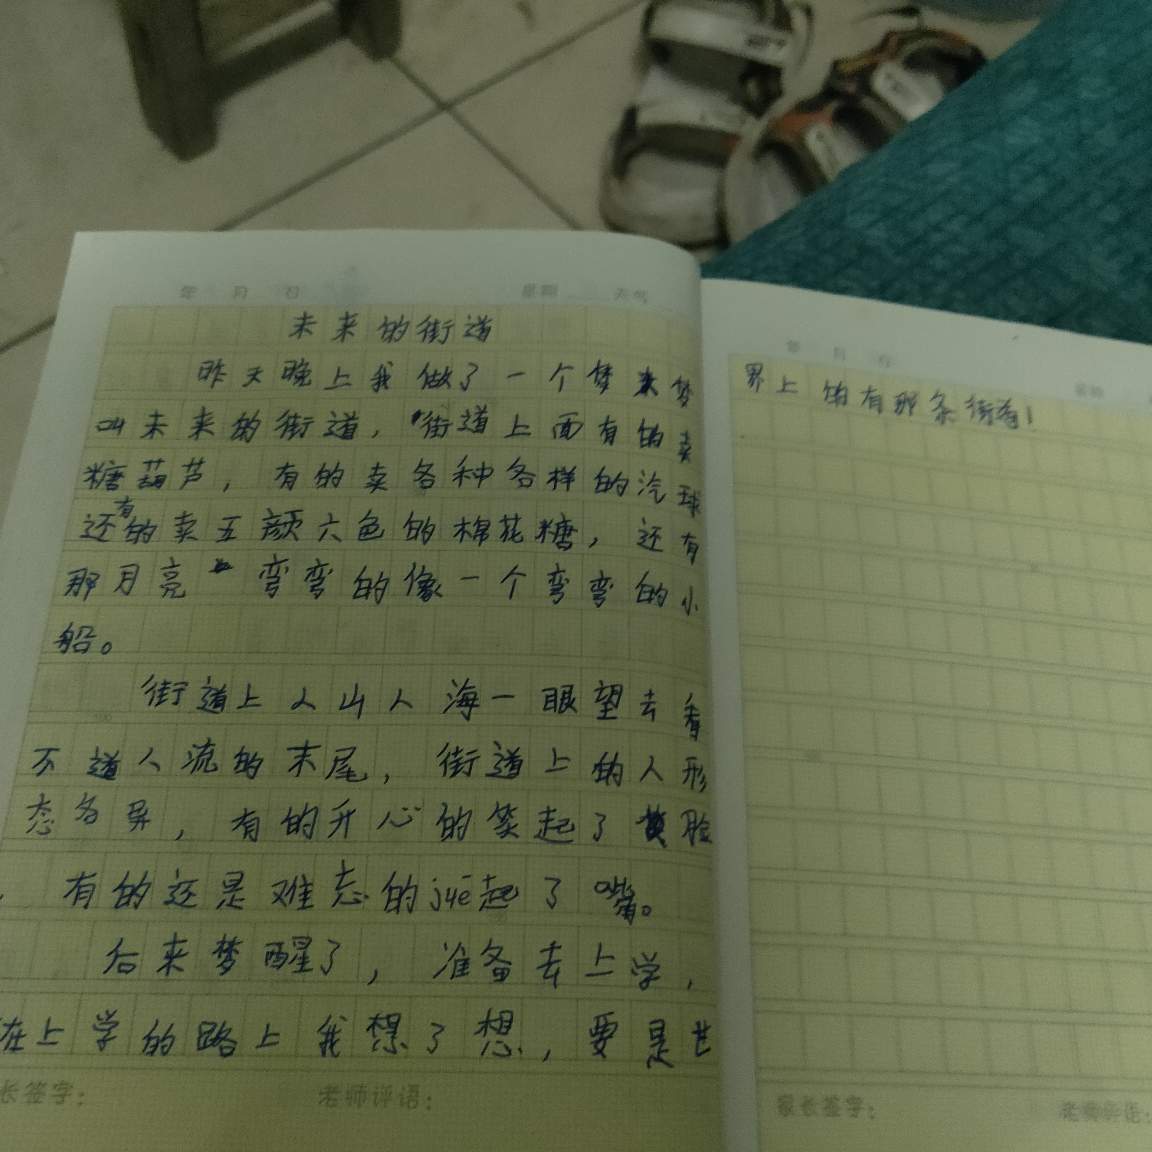 年 月 日 星期 天气
未来的街道
昨天晚上我做了一个梦梦
叫未来的街道，街道上面有的卖
糖葫芦，有的卖各种各样的汽球
还有的卖五颜六色的棉花糖，还有
那月亮弯弯的像一个弯弯的小
船。
街道上人山人海一眼望去看
不道人流的末尾，街道上的人形
态各异，有的开心的笑起了脸
，有的还是难忘的juē起了嘴。
后来梦醒了，准备去上学，
在上学的路上我想了想，要是世
长签字： 老师评语：
年 月 日
界上真有那条街道！
家长签字： 老师评语：